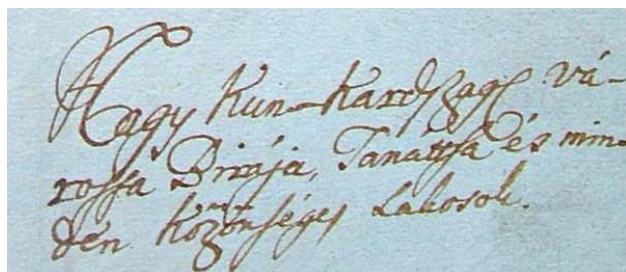 Nagy Kun-Kardszagh vá-
rossa Birája, Tanáttsa és min-
den közönséges Lakosok.